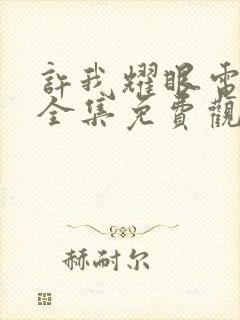 許我耀眼電
全集免費觀
赫耐尔